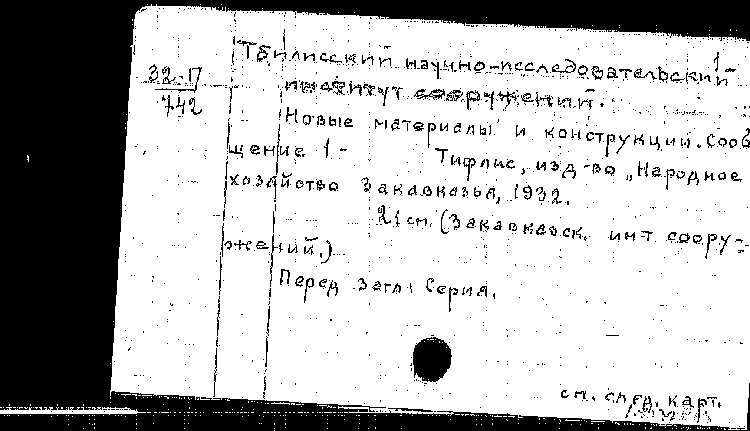 1
Тбилисский научно-исследовательский
32-П
742
институт сооружений.
Новые материалы и конструкции. Сооб
щение 1- Тифлис, изд-во „Народное
хозяйство Закавказья, 1932.
21 см. (Закавказск. ин-т соору-
жений.)
Перед загл: Серия.
см. след. карт.